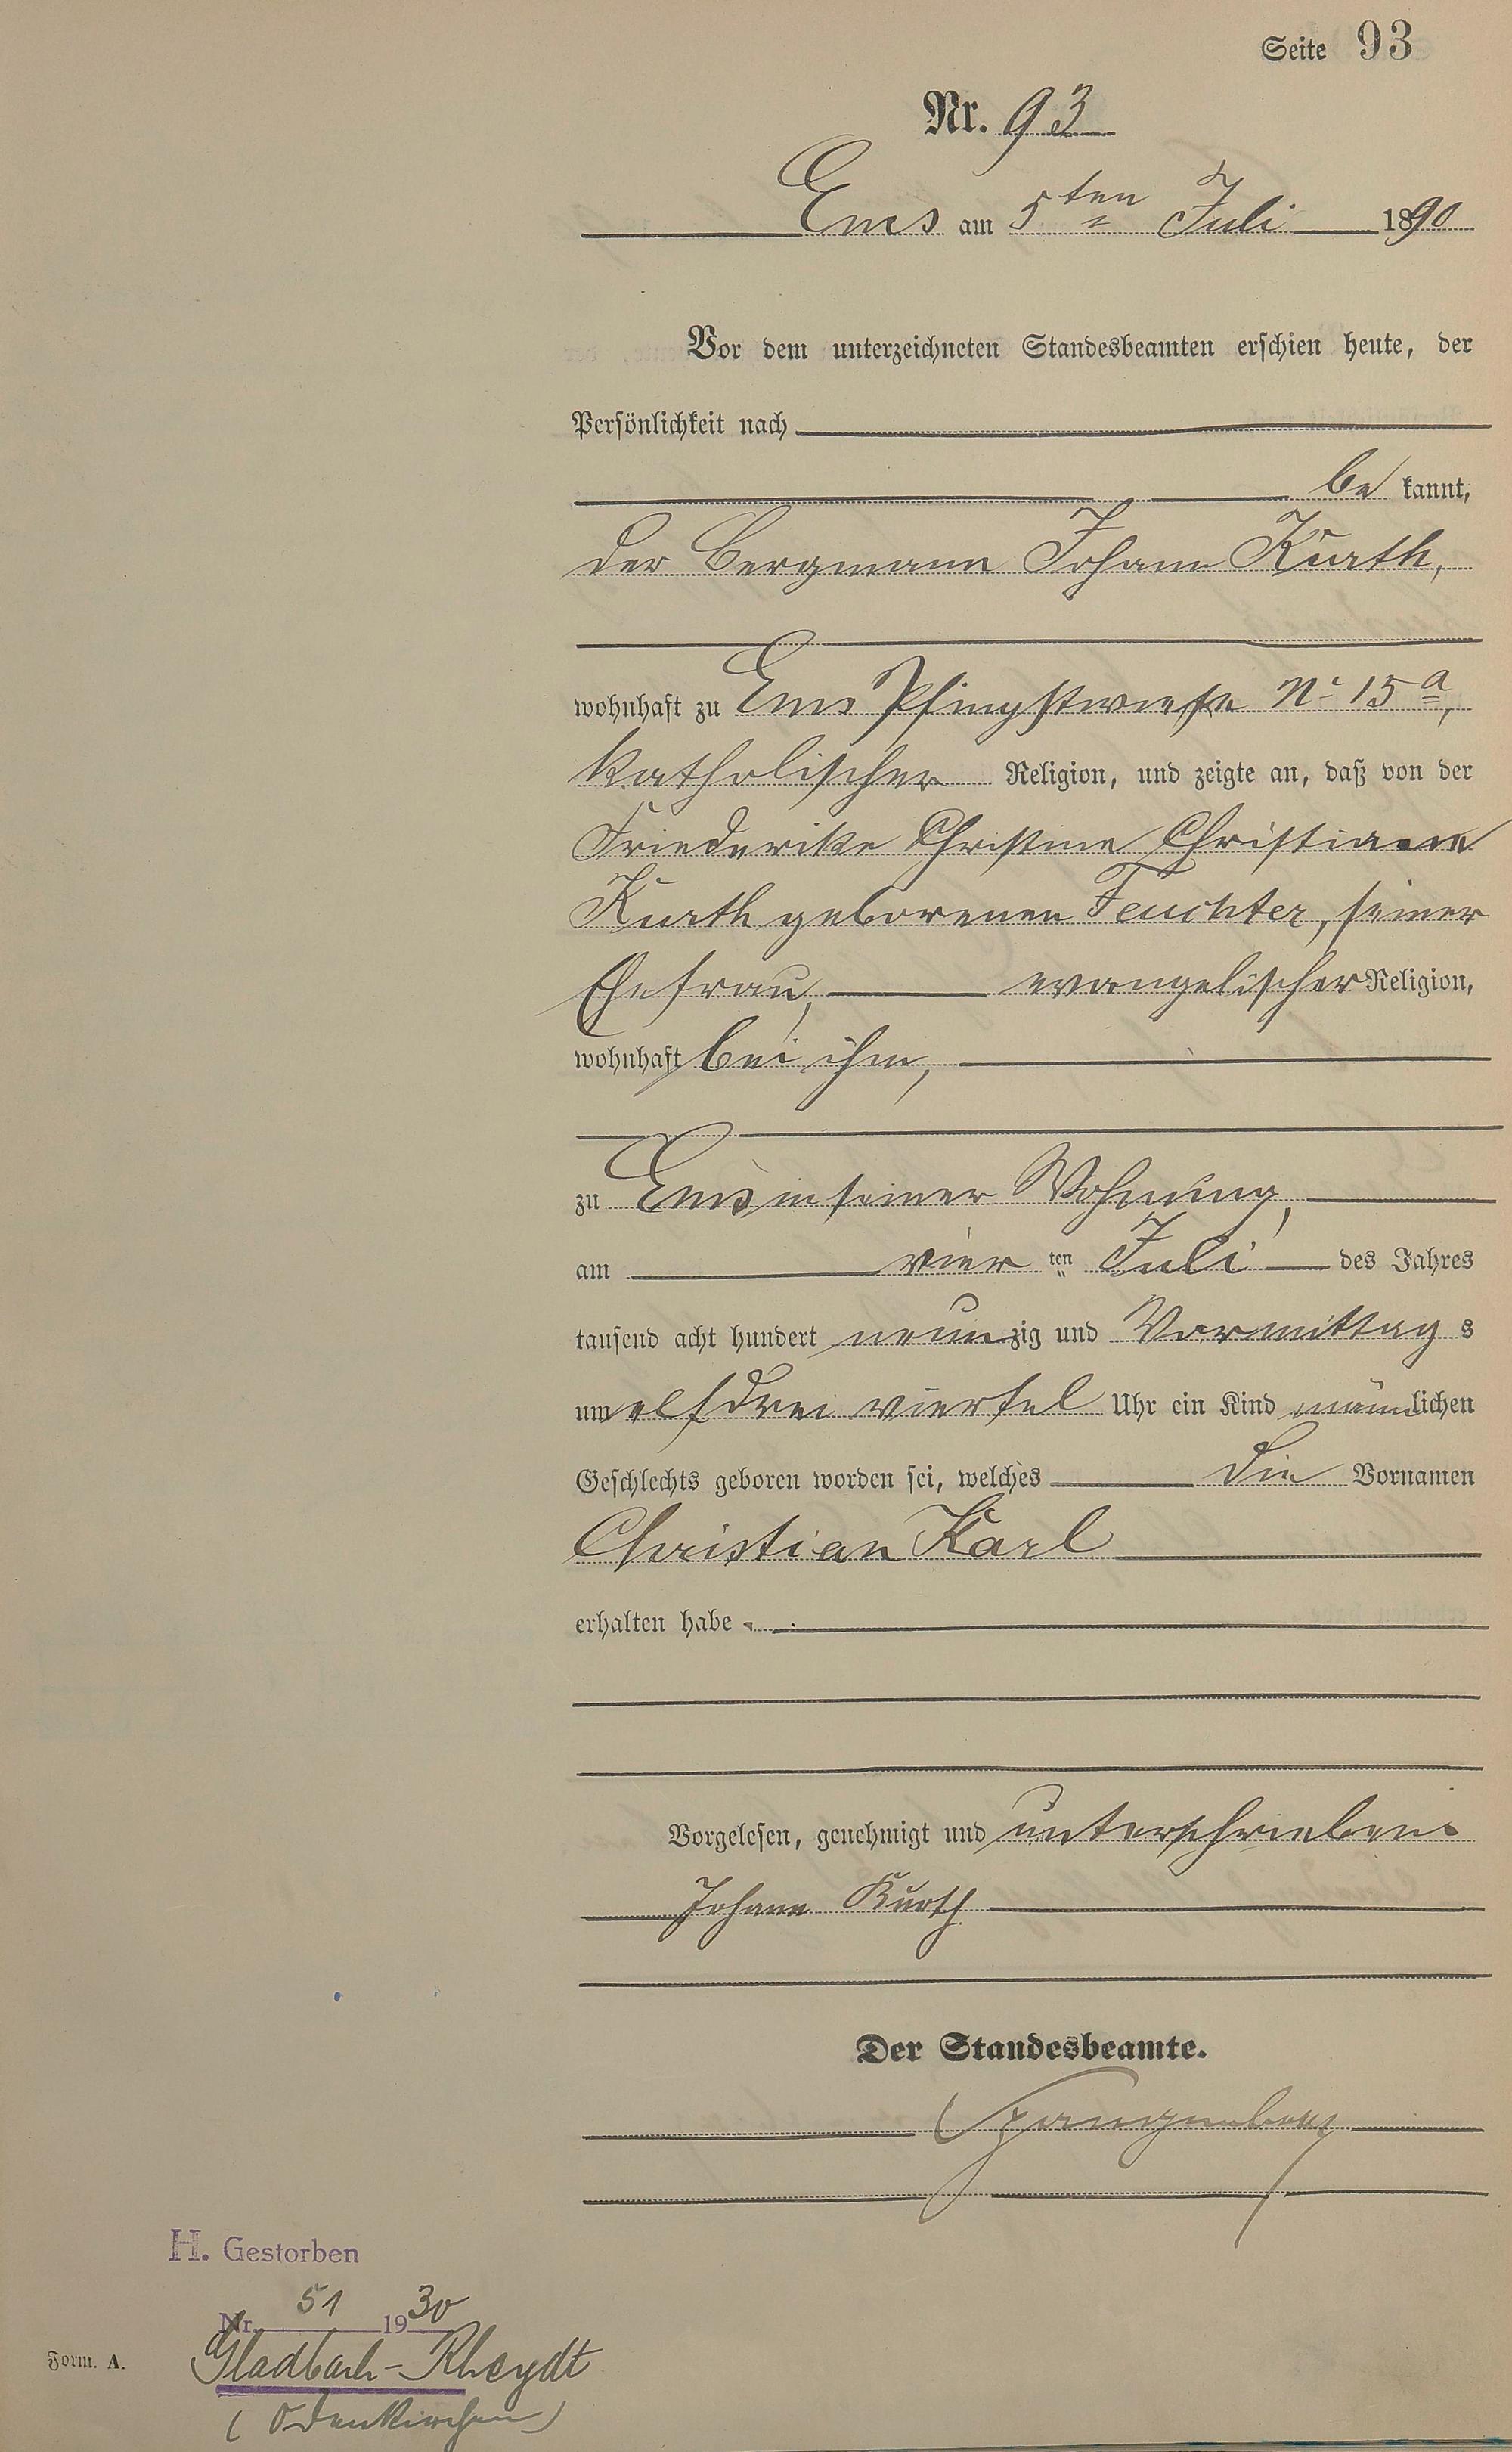 Seite 93
Nr. 93
Ems am 5ten Juli 1890
Vor dem unterzeichneten Standesbeamten erschien heute, der
Persönlichkeit nach
be kannt,
der Bergmann Johann Kurth,
wohnhaft zu Ems Pfingstwiese No 15a,
katholischer Religion, und zeigte an, daß von der
Friederike Christine Christiane
Kurth geborenen Feuchter, seiner
Ehefrau, evangelischer Religion,
wohnhaft bei ihm,
zu Ems in seiner Wohnung,
am vier ten Juli des Jahres
tausend acht hundert neunzig und Vormittag s
um elf drei viertel Uhr ein Kind männlichen
Geschlechts geboren worden sei, welches die Vornamen
Christian Karl
erhalten habe
Vorgelesen, genehmigt und unterschrieben
Johann Kurth
Der Standesbeamte.
Spangenberg
H. Gestorben
Nr. 51 1930
Form. A. Gladbach-Rheydt
(Odenkirchen)